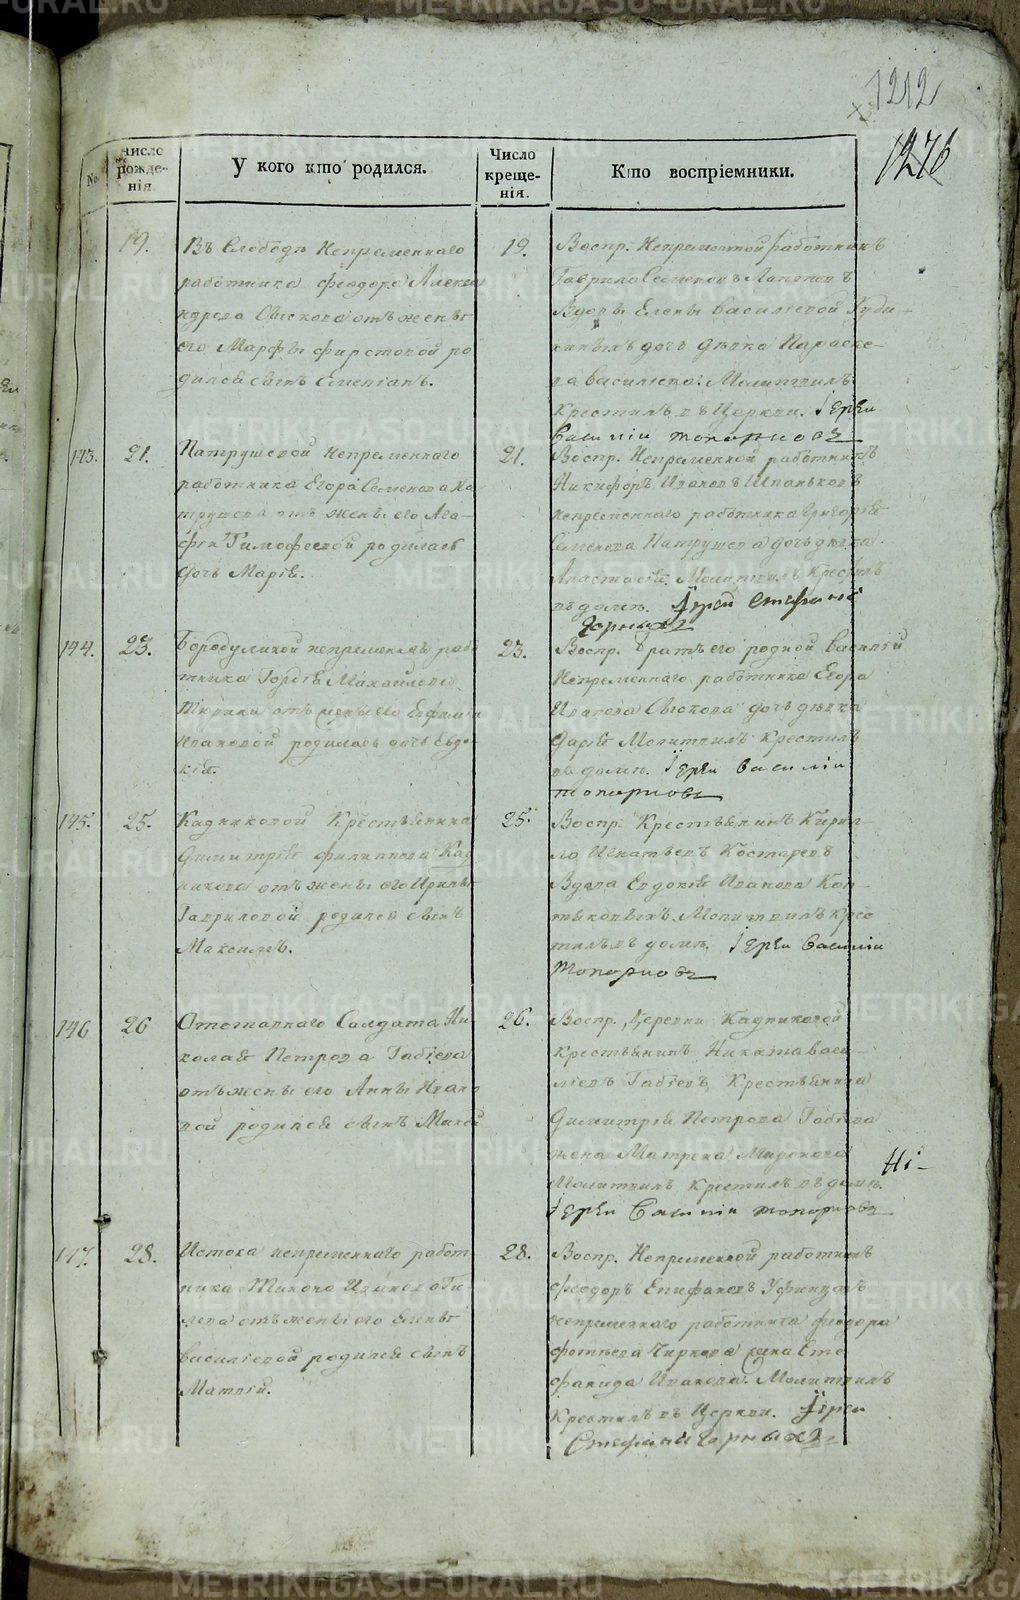 1212
1276
№
Число рожде-нія
У кого кто родился.
Число креще-нія.
Кто воспріемники.
19.
Въ Слободѣ Непременнаго
работника Феодора Алекса
ндрова Сыскова отъ жены
его Марфы Фирстовой ро
дился сынъ Емелианъ.
19.
Воспр. Непременной работникъ
Гаврило Семеновъ
Вдовы Елены Васильевой
дочь дѣвка Параске-
ва Васильева. Молитвилъ
Крестилъ въ Церкви. Іерей
Василій Топорковъ
143.
21.
Патрушевой Непременнаго
работника Егора Семенова Па
трушева отъ жены его Ага-
фьи Тимофеевой родилась
дочь Марія.
21.
Воспр. Непременной работникъ
Никифоръ Ивановъ
непременнаго работника Григорья
Семенова Патрушева дочь дѣвка
Анастасія. Молитвилъ Крестилъ
въ домѣ. Іерей Стефанъ
Черныхъ
144.
23.
Бородулиной непременнаго рабо
тника Гордѣя Михайлова
отъ жены его Евфиміи
Ивановой родилась дочь Евдо-
кія.
23.
Воспр. братъ его родной Василій
Непременнаго работника Егора
Иванова Сыскова дочь дѣвка
Дарія Молитвилъ Крестилъ
въ домѣ. Іерей Василій
Топорковъ
145.
25.
Кадниковой Крестьянина
Димитрія Филиппова Кад
никова отъ жены его Ирины
Гавриловой родился сынъ
Максимъ.
25.
Воспр. Крестьянинъ Кирил-
ло Игнатьевъ Костаревъ
Вдова Евдокія Иванова
Молитвилъ Крес
тилъ въ домѣ. Іерей Василій
Топорковъ
146
26
Отставнаго Салдата Ни
колая Петрова Габіева
отъ жены его Анны Ивано
вой родился сынъ
26.
Воспр. Деревни Кадниковой
Крестьянинъ Никита Васи-
льевъ Габіевъ, Крестьянина
Димитрія Петрова Габіева
жена Матрена Миронова
Молитвилъ Крестилъ въ домѣ.
Іерей Василій Топорковъ
147.
28.
Истока непременнаго работ
ника Тихона Иванова Ги
лева отъ жены его Елены
Васильевой родился сынъ
Матвій.
28.
Воспр. Непременной работникъ
Феодоръ Епифановъ
непременнаго работника Феодора
Фотіева Чиркова жена Сте
фанида Иванова. Молитвилъ
Крестилъ въ Церкви. Іерей
Стефанъ Черныхъ
METRIKI.GASO-URAL.RU